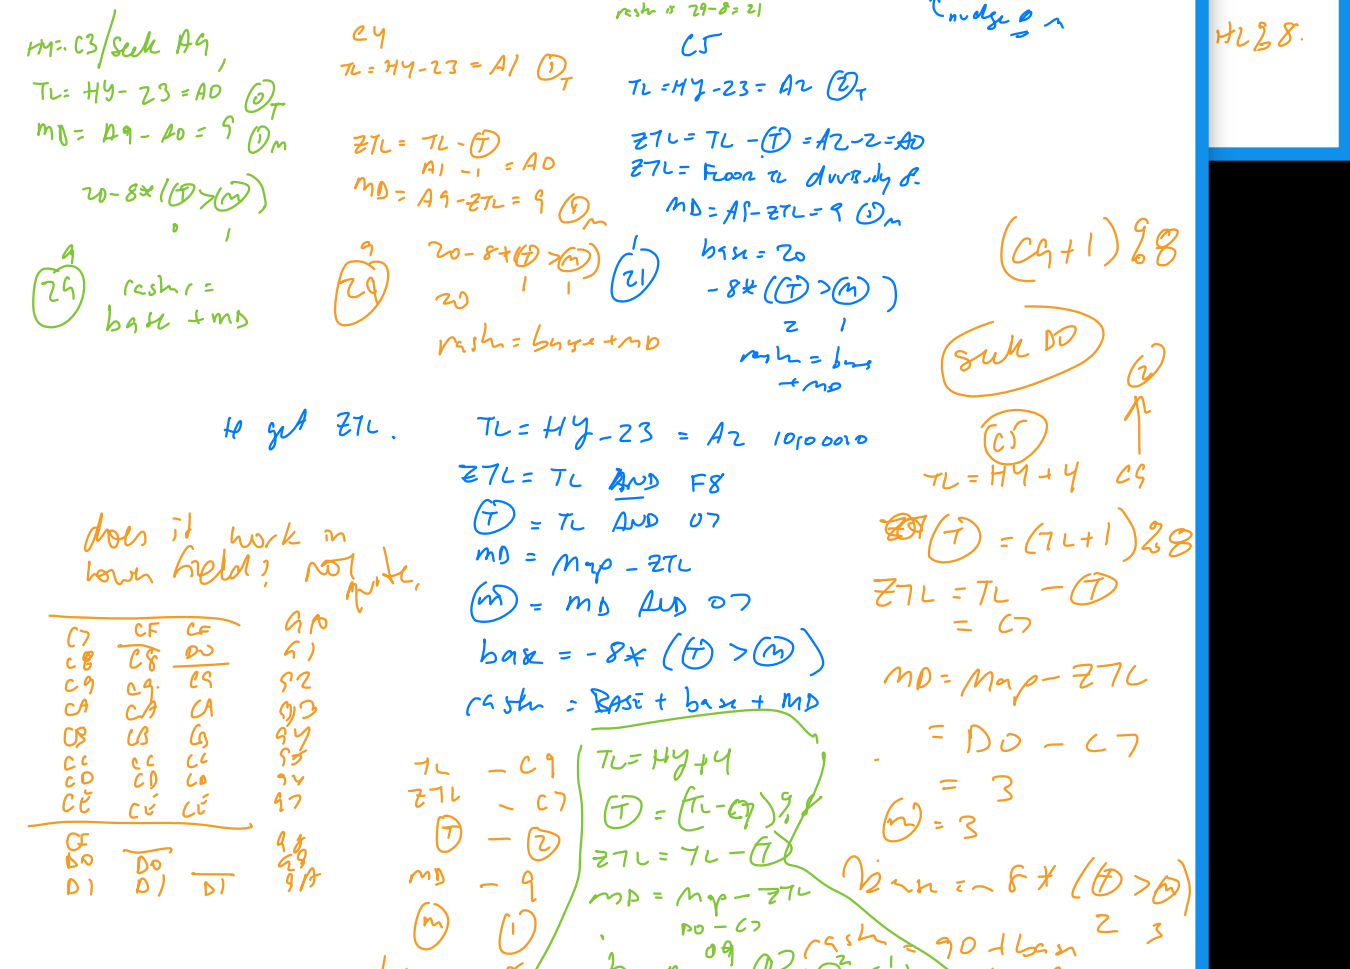 rasher is 29-8=21
nudge 0 m
HL%8.
HY=C3/seek A9,
TL=HY-23=A0 (0)T
MD=A9-A0=9 (1)M
20-8*(T>M)
0 1
9
29
rasher=
base+MD
C4
TL=HY-23=A1 (1)T
ZTL=TL-T
A1-1=A0
MD=A9-ZTL=9 (1)M
9
29
20-8*(T>M)
1 1
20
rash=base+MD
C5
TL=HY-23=A2 (2)T
ZTL=TL-T=A2-2=A0
ZTL=Floor TL div by 8.
MD=A9-ZTL=9 (1)M
1
21
base=20
-8*(T>M)
2 1
rash=base
+MD
(C9+1)%8
seek D0
2
C5
TL=HY+4 C9
T=(TL+1)%8
ZTL=TL-T
=C7
MD=Map-ZTL
=D0-C7
=3
M=3
base=-8*(T>M)
2 3
rash=90+base
to get ZTL.
TL=HY-23=A2 10100010
ZTL=TL AND F8
T=TL AND 07
MD=Map-ZTL
M=MD AND 07
base=-8*(T>M)
rash=BASE+base+MD
does it work in
town field? not quite.
C7 CF CF 90
C8 C8 D0 91
C9 C9. C9 92
CA CA CA 93
CB CB CB 94
CC CC CC 95
CD CD CD 96
CE CE CE 97
CF 98
D0 D0 99
D1 D1 D1 9A
TL - C9
ZTL - C7
T - 2
MD - 9
M 1
TL=HY+4
T=(TL-C7)%8
ZTL=TL-T
MD=Map-ZTL
D0-C7
09